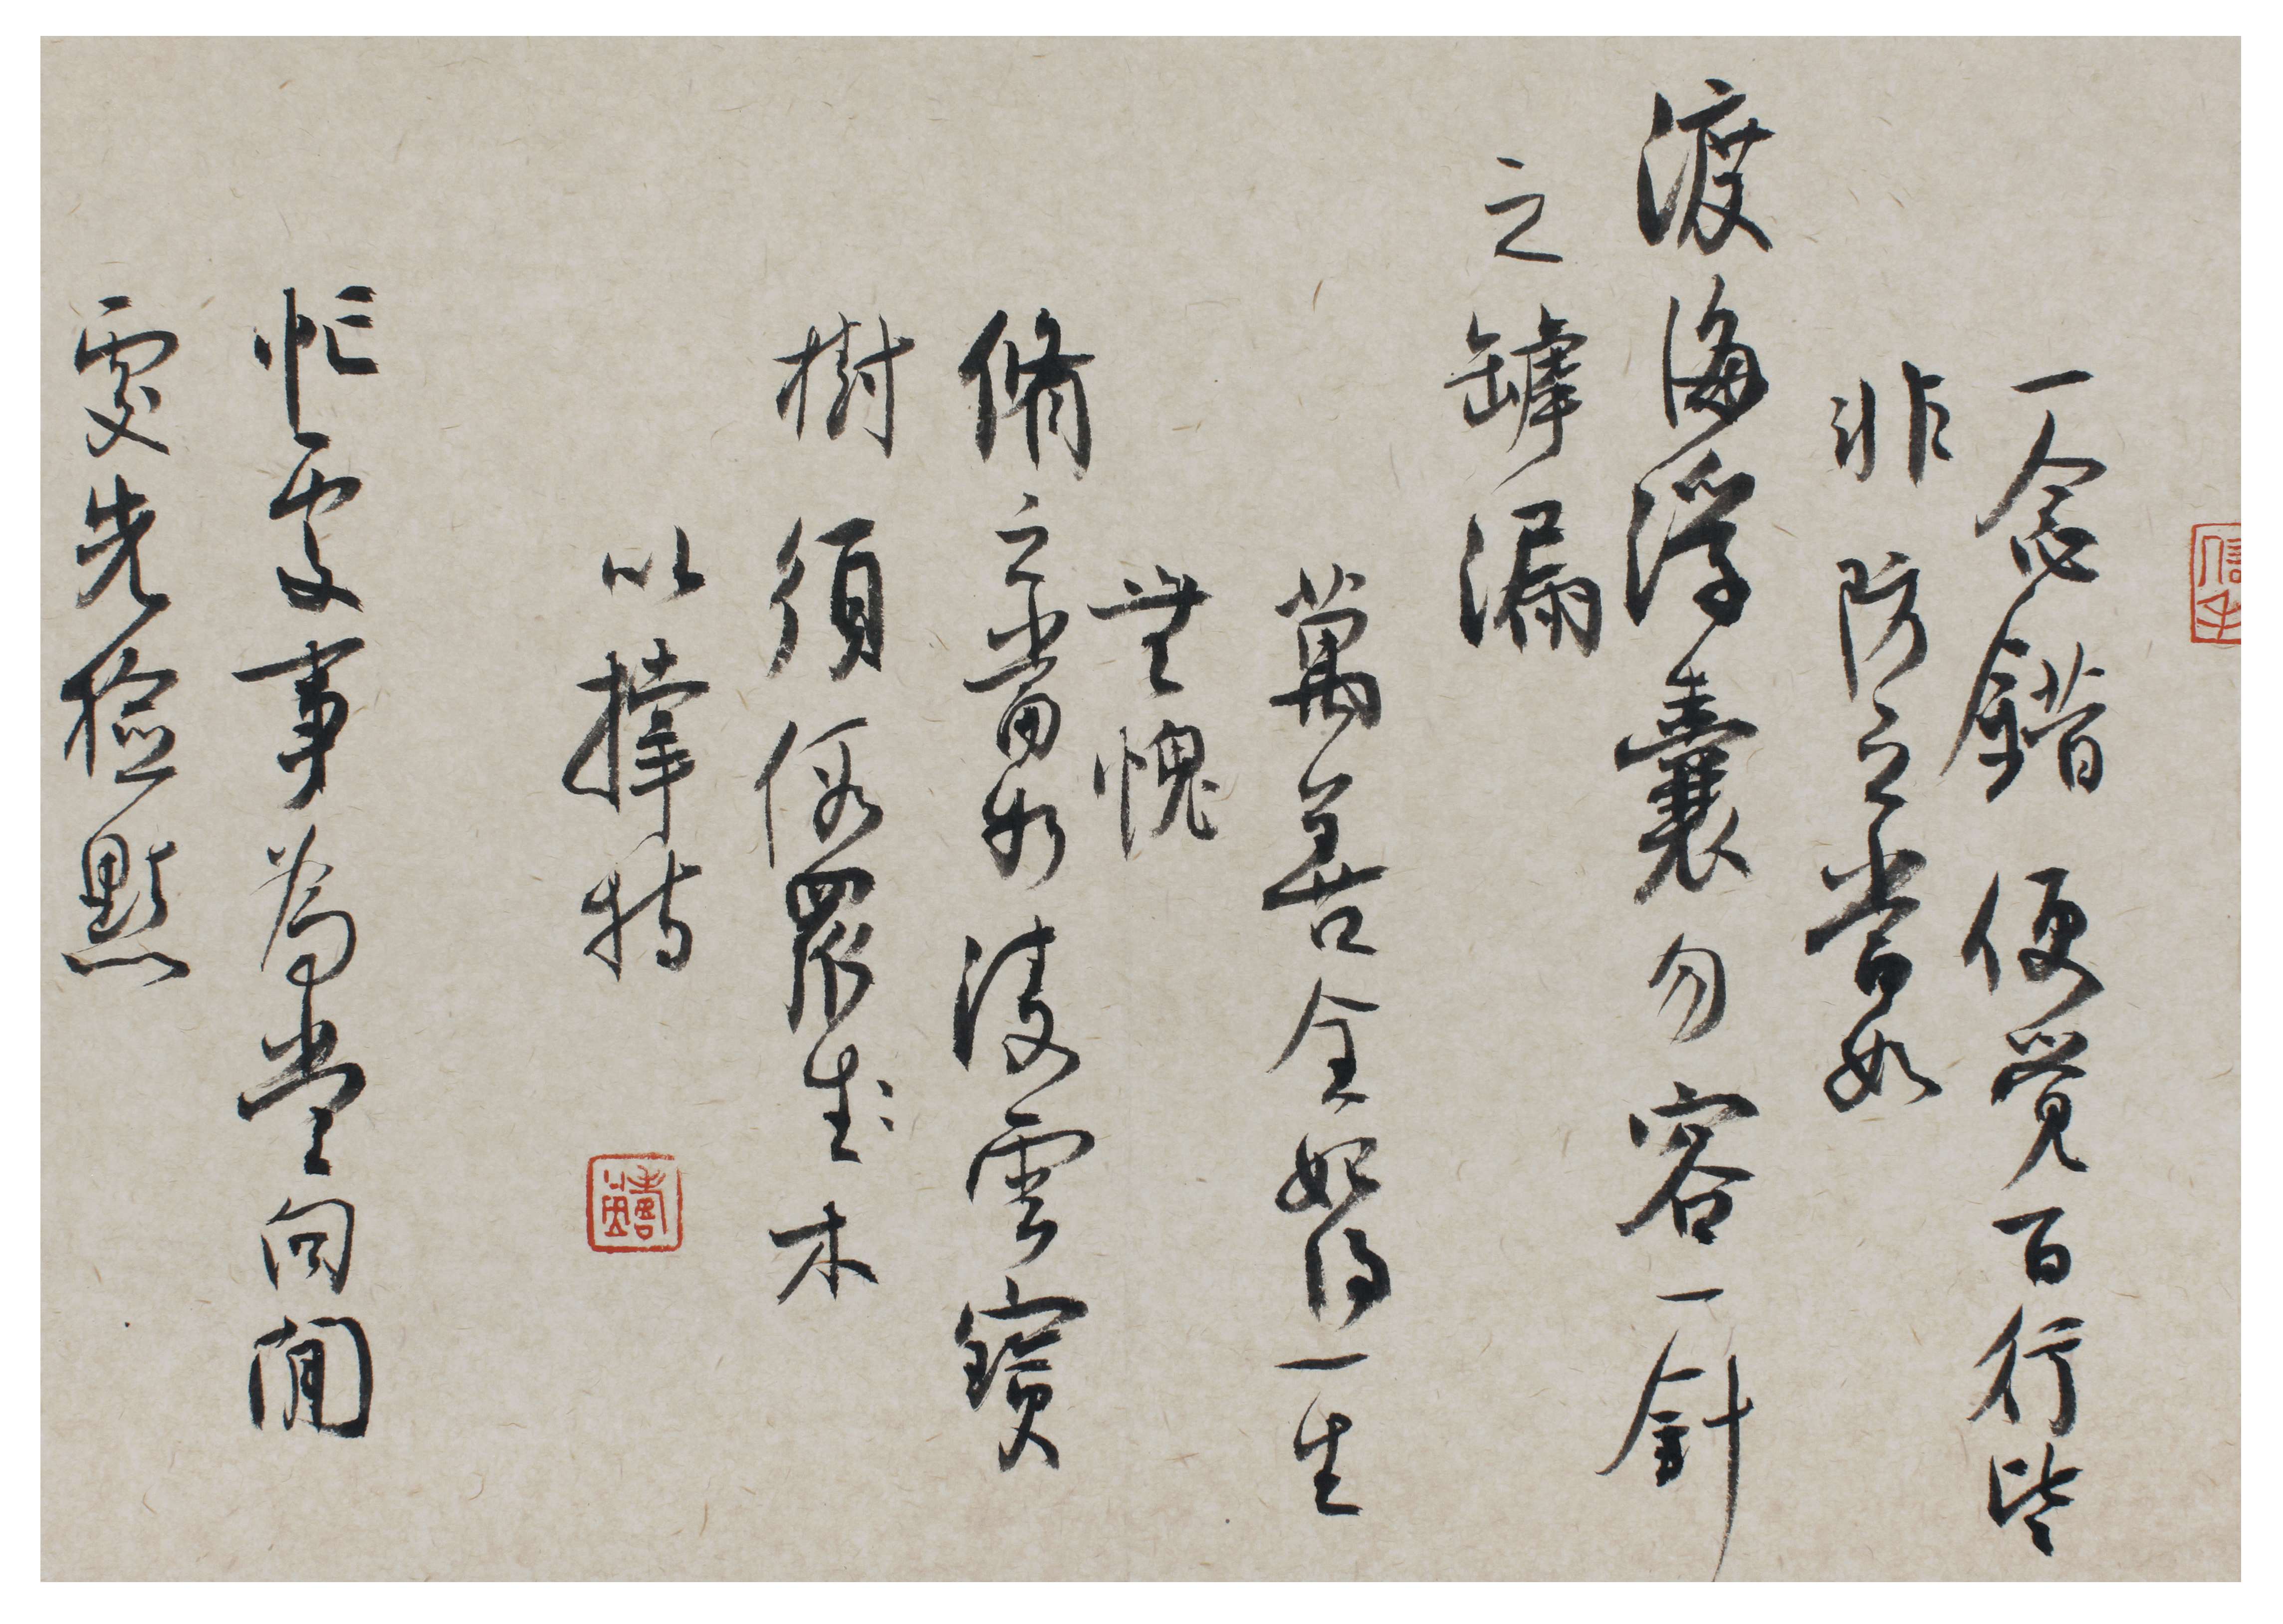 一念錯便覺百行皆
非防之當如
渡海浮囊勿容一針
之罅漏
萬善全始得一生
無愧
脩之當如淩雲寶
樹須假眾木
以撐持
忙處事為當向閒
處先檢點